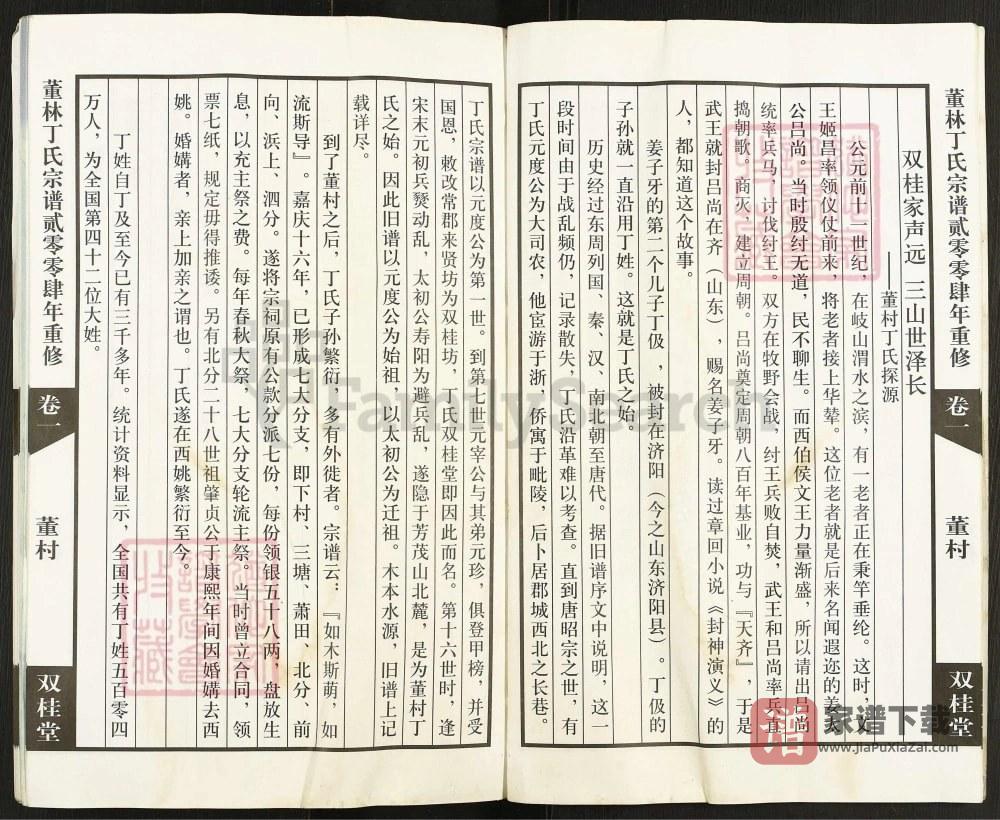 董林丁氏宗谱贰零零肆年重修
卷一
董村
双桂堂
双桂家声远 三山世泽长
——董村丁氏探源
公元前十一世纪,在岐山渭水之滨,有一老者正在秉竿垂纶。这时,文
王姬昌率领仪仗前来,将老者接上华辇。这位老者就是后来名闻遐迩的姜太
公吕尚。当时殷纣无道,民不聊生。而西伯侯文王力量渐盛,所以请出吕尚
统率兵马,讨伐纣王。双方在牧野会战,纣王兵败自焚,武王和吕尚率兵直
捣朝歌。商灭,建立周朝。吕尚奠定周朝八百年基业,功与『天齐』,于是
武王就封吕尚在齐(山东),赐名姜子牙。读过章回小说《封神演义》的
人,都知道这个故事。
姜子牙的第二个儿子丁伋 ,被封在济阳(今之山东济阳县)。丁伋的
子孙就一直沿用丁姓。这就是丁氏之始。
历史经过东周列国、秦、汉、南北朝至唐代。据旧谱序文中说明,这一
段时间由于战乱频仍,记录散失,丁氏沿革难以考查。直到唐昭宗之世,有
丁氏元度公为大司农,他宦游于浙,侨寓于毗陵,后卜居郡城西北之长巷。
丁氏宗谱以元度公为第一世。到第七世元宰公与其弟元珍,俱登甲榜,并受
国恩,敕改常郡来贤坊为双桂坊,丁氏双桂堂即因此而名。第十六世时,逢
宋末元初兵燹动乱,太初公寿阳为避兵乱,遂隐于芳茂山北麓,是为董村丁
氏之始。因此旧谱以元度公为始祖,以太初公为迁祖。木本水源,旧谱上记
载详尽。
到了董村之后,丁氏子孙繁衍,多有外徙者。宗谱云:『如木斯萌,如
流斯导』。嘉庆十六年,已形成七大分支,即下村、三塘、萧田、北分、前
向、浜上、泗分。遂将宗祠原有公款分派七份,每份领银五十八两,盘放生
息,以充主祭之费。每年春秋大祭,七大分支轮流主祭。当时曾立合同,领
票七纸,规定毋得推诿。另有北分二十八世祖肇贞公于康熙年间因婚媾去西
姚。婚媾者,亲上加亲之谓也。丁氏遂在西姚繁衍至今。
丁姓自丁及至今已有三千多年。统计资料显示,全国共有丁姓五百零四
万人,为全国第四十二位大姓。
董林丁氏宗谱贰零零肆年重修
卷一
董村
双桂堂
FamilySearch
谱
家谱下载
www.jiaPuxiazai.com